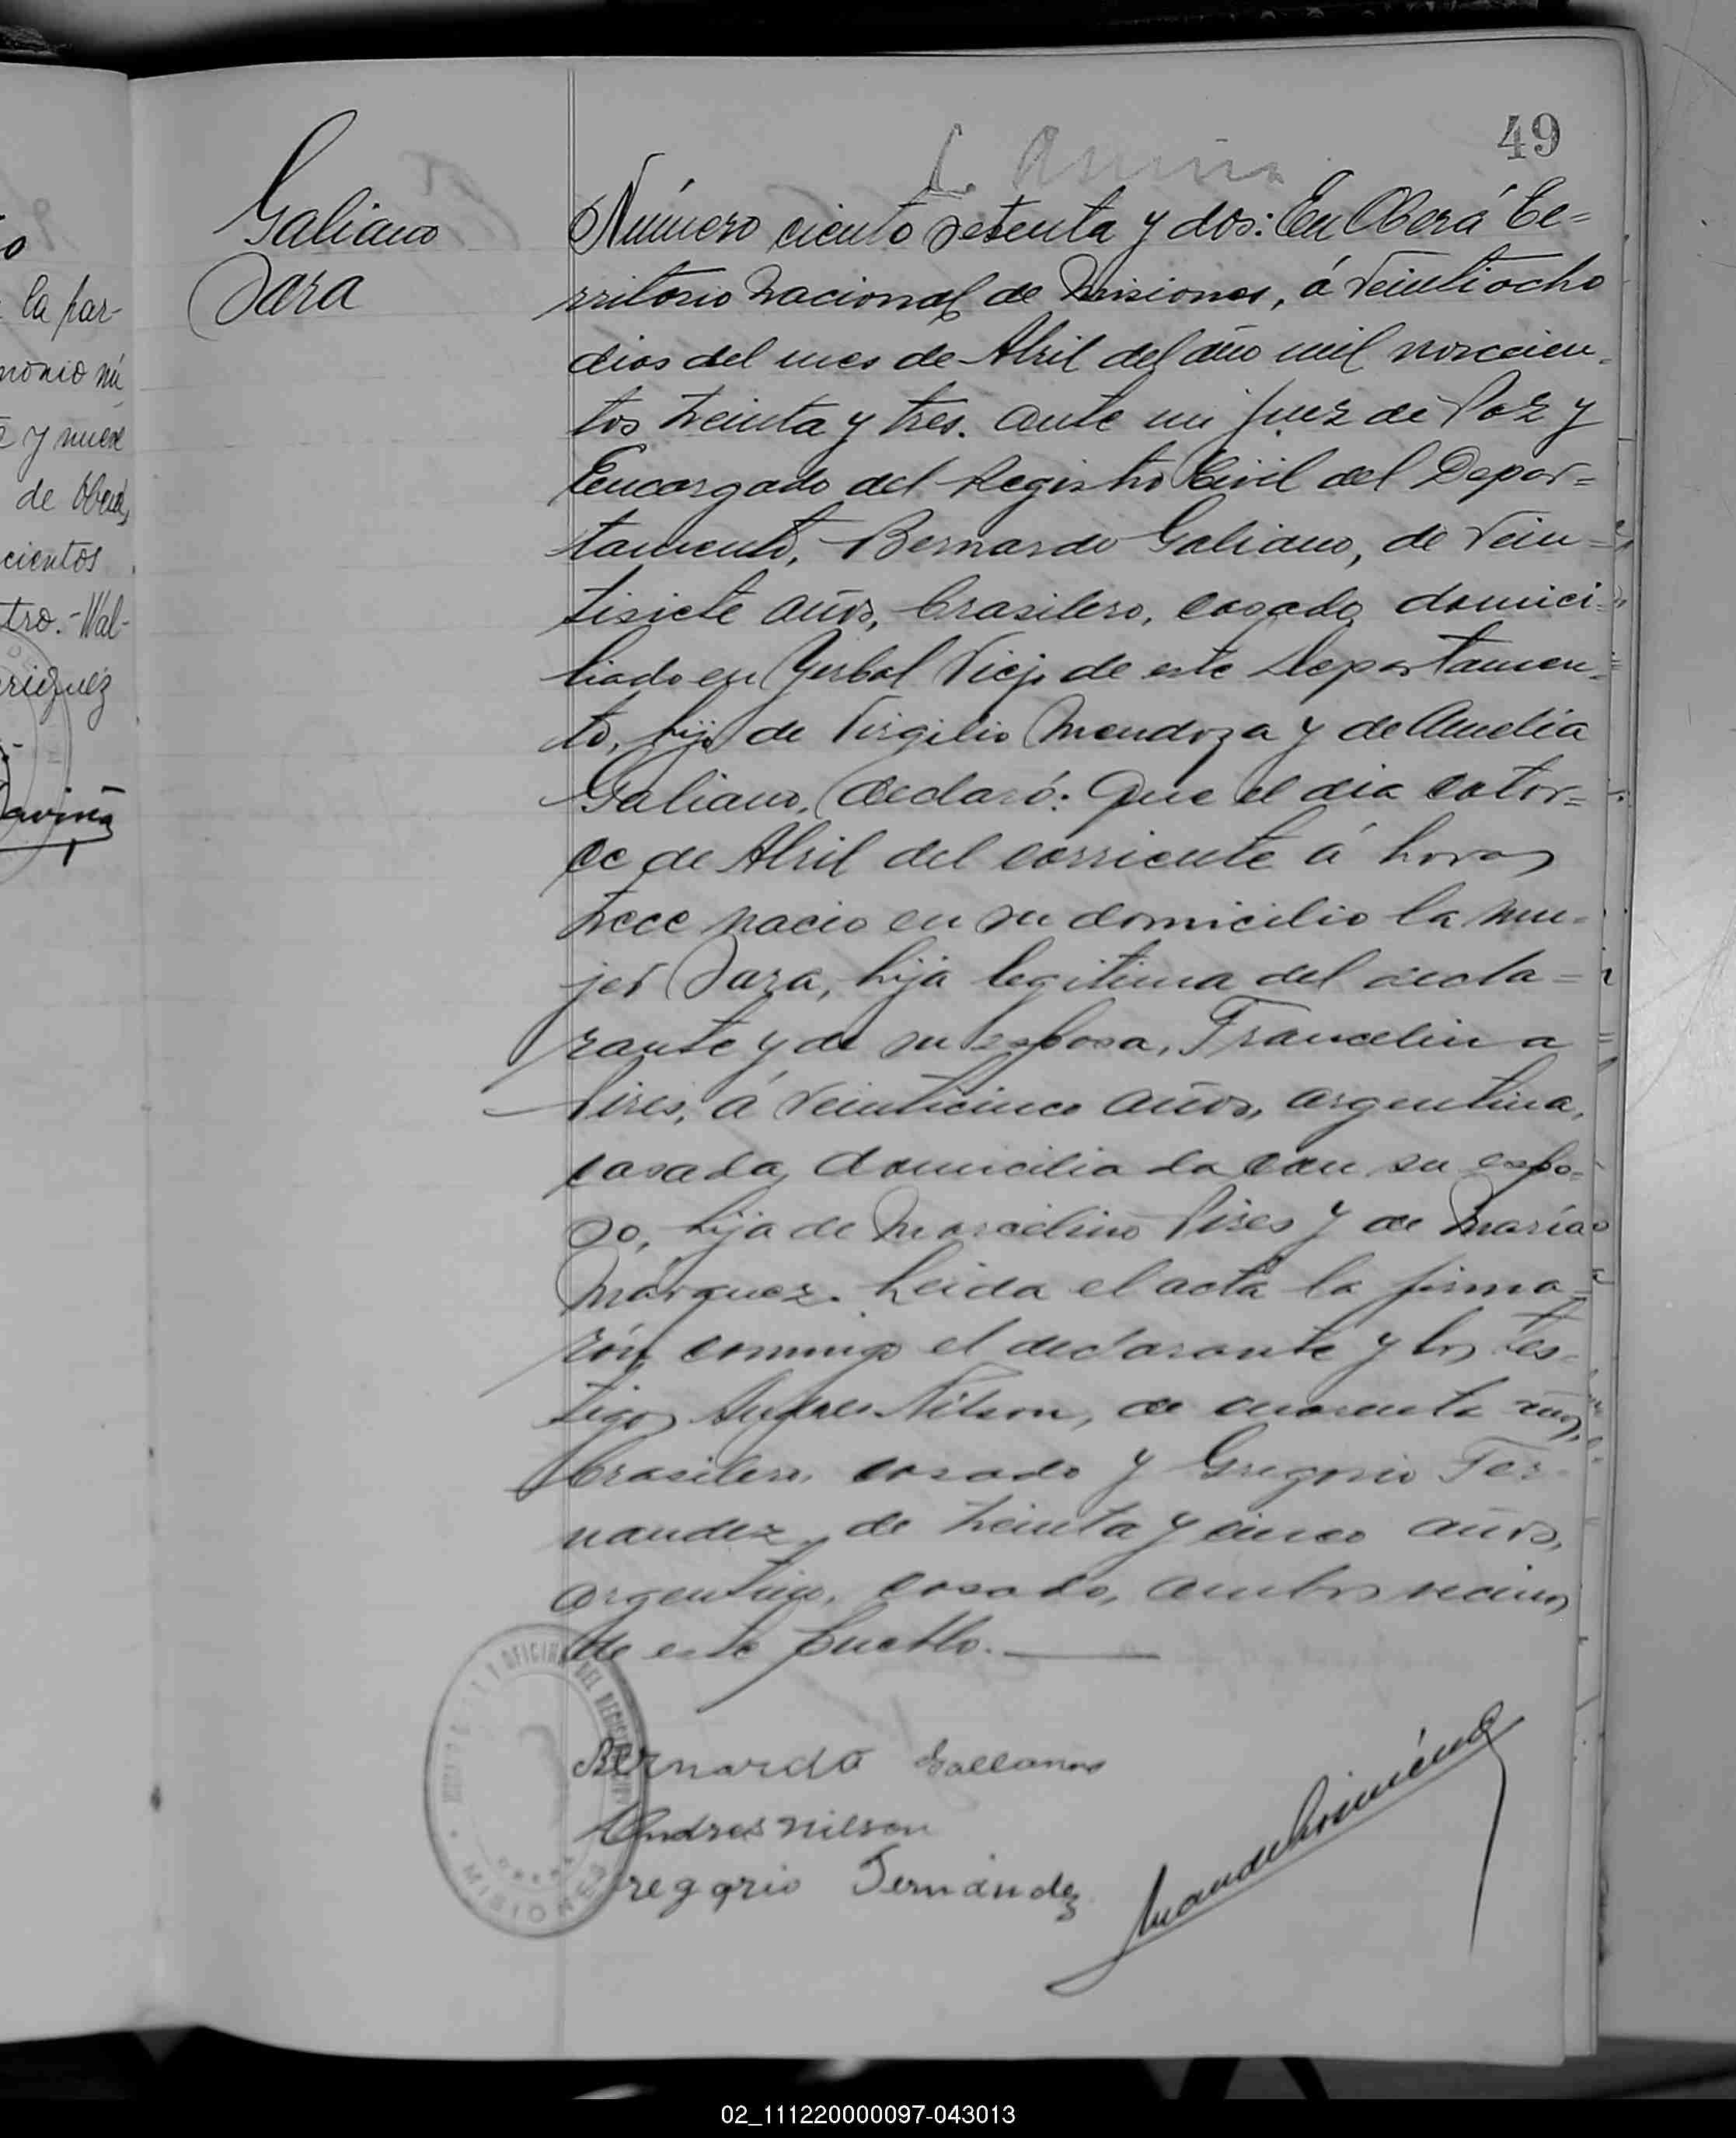 49
Galiano
Sara
Número ciento setenta y dos: En Oberá Te=
rritorio Nacional de Misiones, á veintiocho
dias del mes de Abril del año mil novecien-
tos treinta y tres. ante mi Juez de Paz y
Encargado del Registro Civil del Depar=
tamento, Bernardo Galiano, de vein=
tisiete años, brasilero, casado, domici=
liado en Yerbal Viejo de este Departamen-
to, hijo de Virgilio Mendoza y de Amelia
Galiano, declaró: Que el dia cator=
ce de Abril del corriente á horas
trece nació en su domicilio la mu-
jer Sara, hija legitima del decla=
rante y de su esposa, Francelina
Pires, á veinticinco años, argentina,
casada, domiciliada con su espo-
so, hija de Marcelino Pires y de María
Márquez. Leida el acta la firma-
rón conmigo el declarante y los tes-
tigos Andres Nilson, de cuarenta años,
brasilero, casado y Gregorio Fer-
nandez, de treinta y cinco años,
argentino, casado, ambos vecinos
de este pueblo.
Bernardo Galleanos
Andres Nilson
Greggrio Fernández
la par-
monio nú
y nueve
de Oberá,
cientos
tro.-Wal-
eriguez
OFICINA DEL REGISTRO CIVIL
MISIONES
02_111220000097-043013